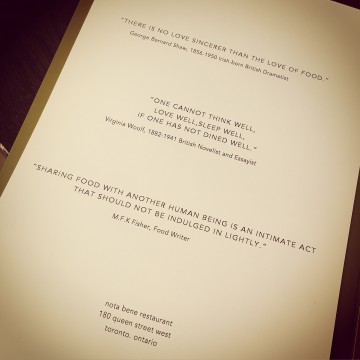 "THERE IS NO LOVE SINCERER THAN THE LOVE OF FOOD."
George Bernard Shaw, 1856-1950 Irish-born British Dramatist
"ONE CANNOT THINK WELL,
LOVE WELL,SLEEP WELL,
IF ONE HAS NOT DINED WELL."
Virginia Woolf, 1882-1941 British Novelist and Essayist
"SHARING FOOD WITH ANOTHER HUMAN BEING IS AN INTIMATE ACT
THAT SHOULD NOT BE INDULGED IN LIGHTLY."
M.F.K Fisher, Food Writer
nota bene restaurant
180 queen street west
toronto, ontario